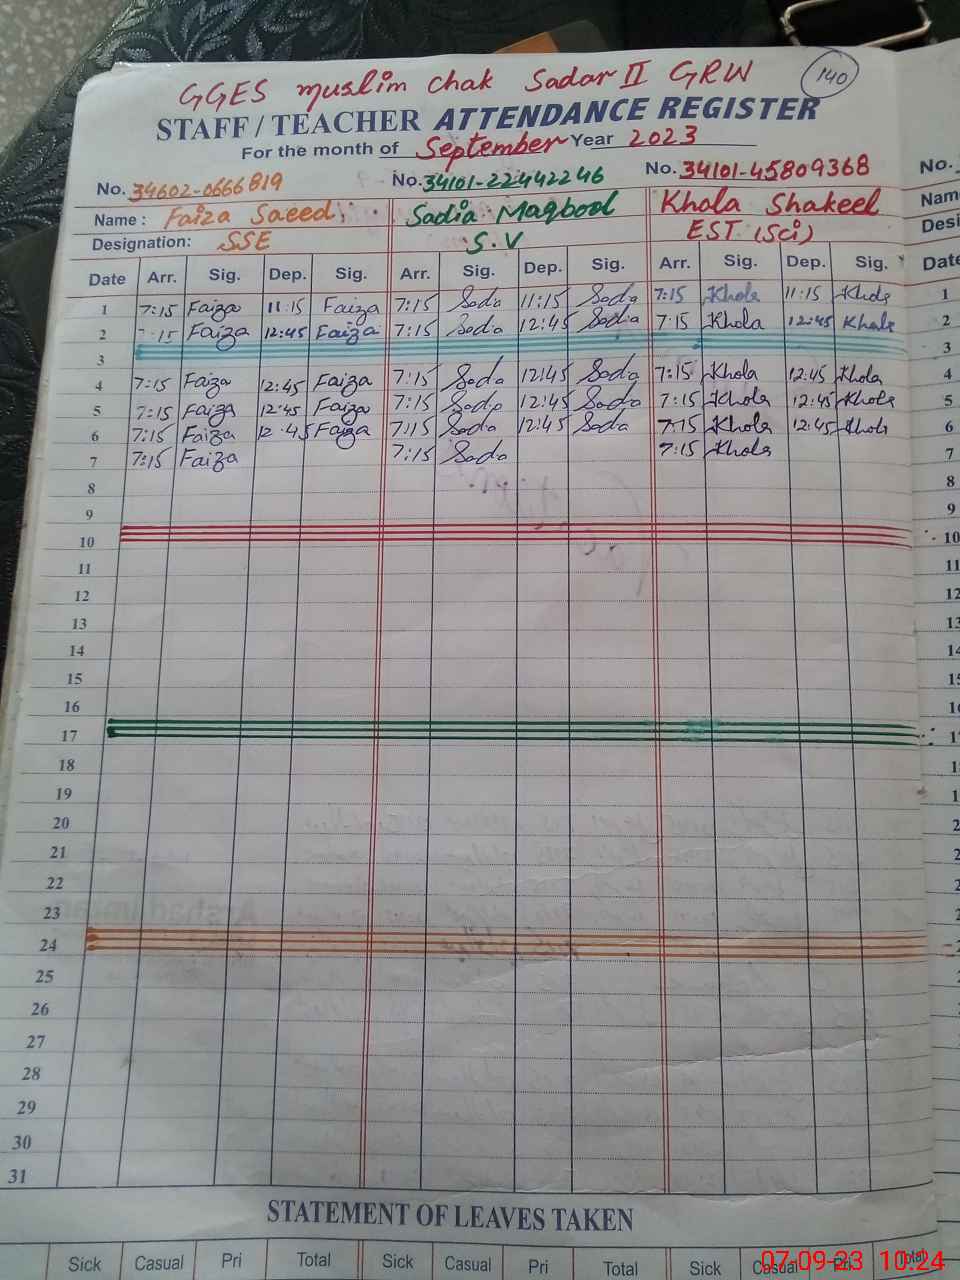 GGES muslim chak Sadar II GRW
140
STAFF / TEACHER ATTENDANCE REGISTER
For the month of September Year 2023
No. 34602-0666819 No. 34101-22442246 No. 34101-45809368 No.
Name : Faiza Saeed Sadia Maqbool Khola Shakeel Name
Designation: SSE S.V EST (Sci) Desi
Date Arr. Sig. Dep. Sig. Arr. Sig. Dep. Sig. Arr. Sig. Dep. Sig. Date
1 7:15 Faiza 11:15 Faiza 7:15 Sada 11:15 Sada 7:15 Khola 11:15 Khola 1
2 7:15 Faiza 12:45 Faiza 7:15 Sada 12:45 Sadia 7:15 Khola 12:45 Khola 2
3 3
4 7:15 Faiza 12:45 Faiza 7:15 Sada 12:45 Sada 7:15 Khola 12:45 Khola 4
5 7:15 Faiza 12:45 Faiza 7:15 Sada 12:45 Sada 7:15 Khola 12:45 Khola 5
6 7:15 Faiza 12:45 Faiza 7:15 Sada 12:45 Sada 7:15 Khola 12:45 Khola 6
7 7:15 Faiza 7:15 Sada 7:15 Khola 7
8 8
9 9
10 10
11 11
12 12
13 13
14 14
15 15
16
17
18
19
20
21
22
23
24
25
26
27
28
29
30
31
STATEMENT OF LEAVES TAKEN
Sick Casual Pri Total Sick Casual Pri Total Sick Casual Pri Total
07-09-23 10:24